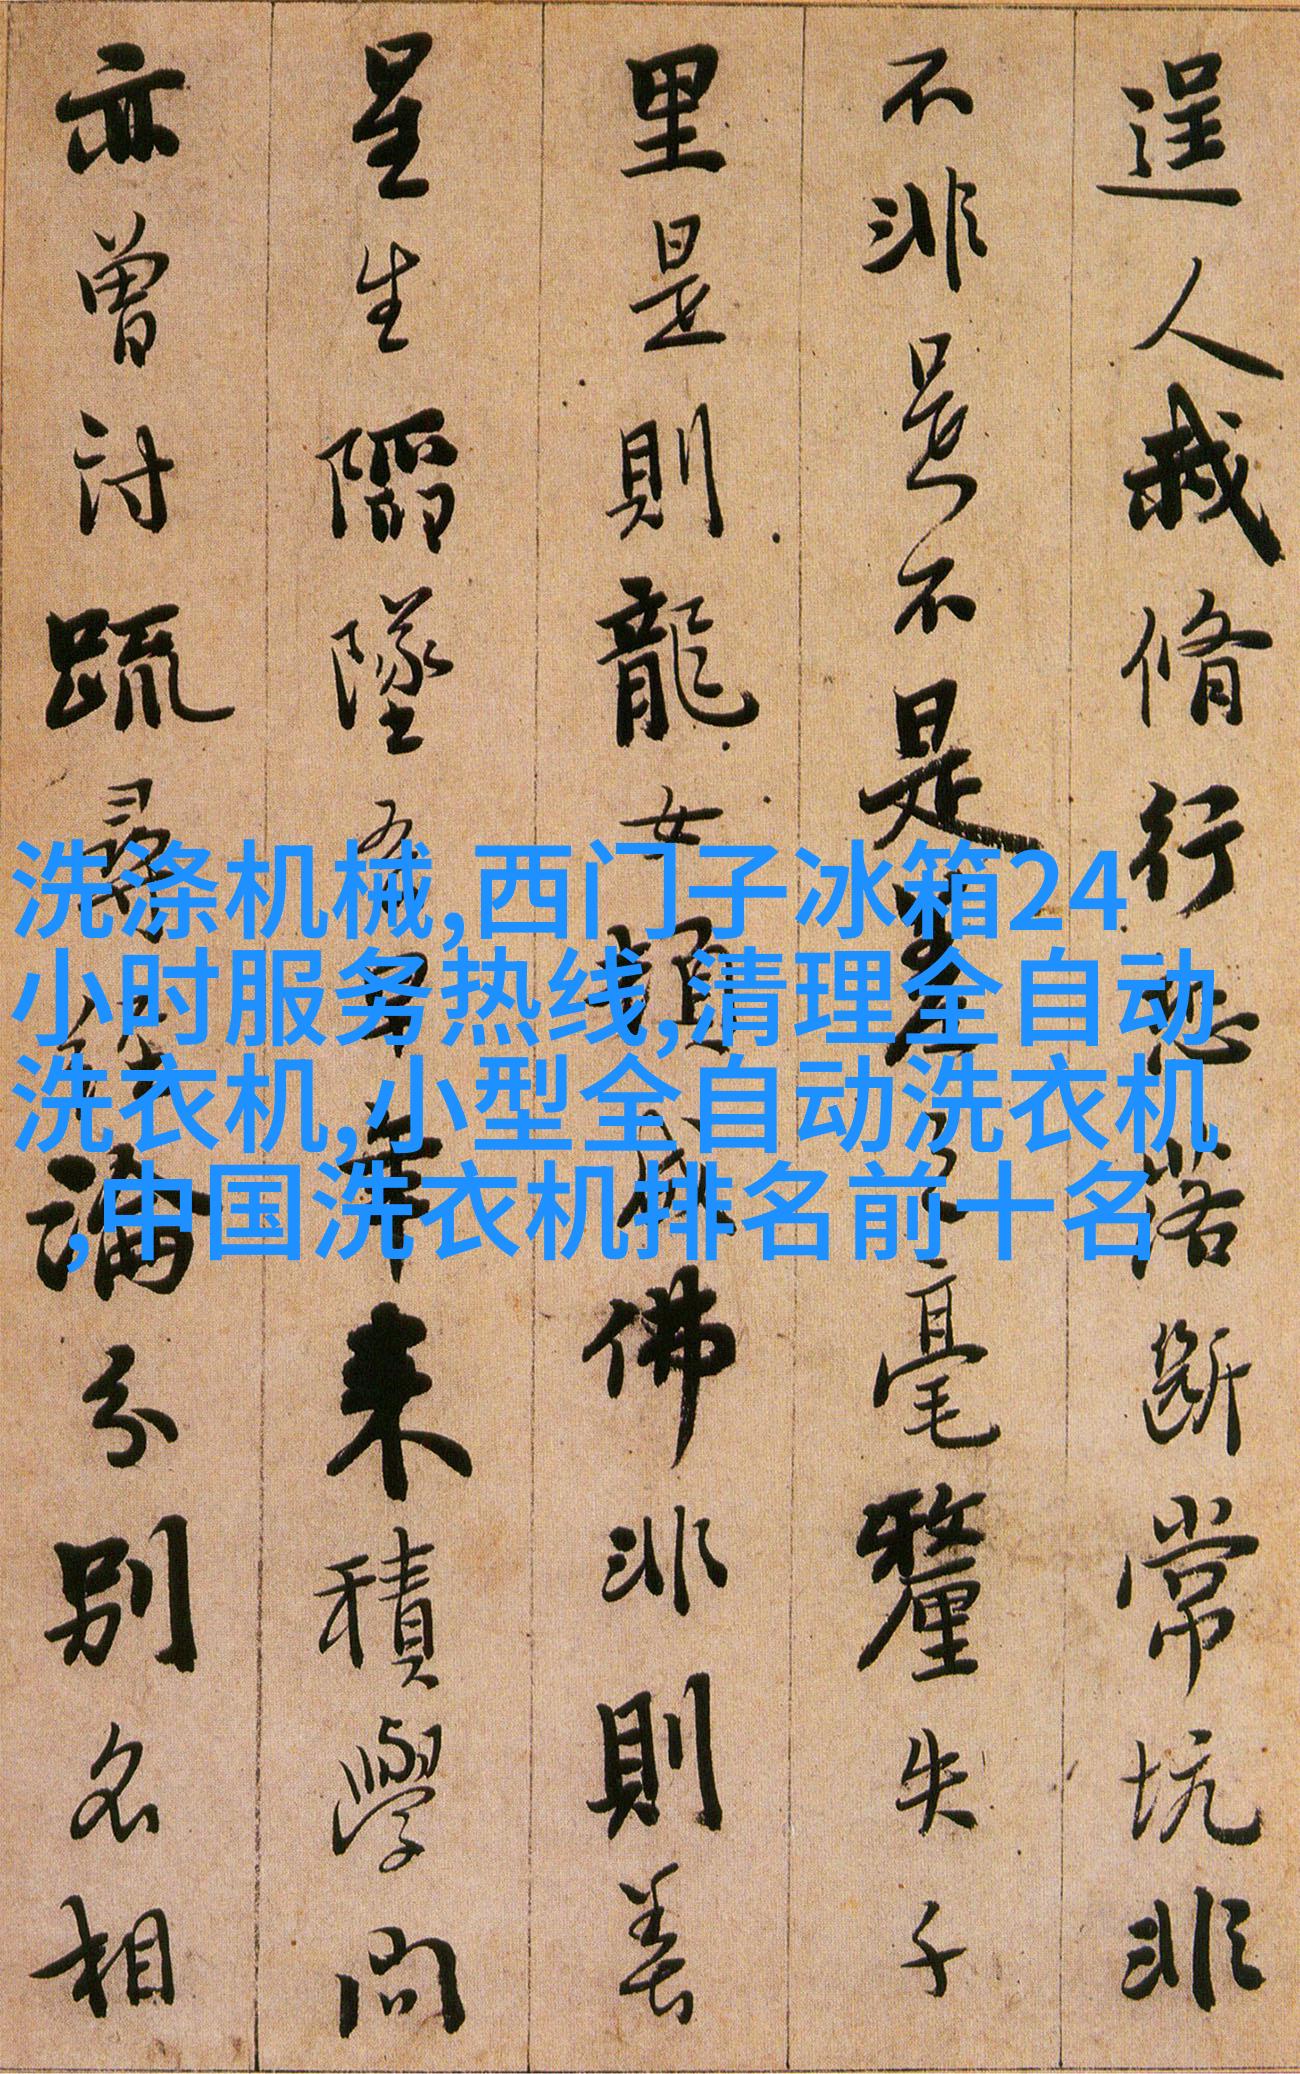 逞人我脩行恐落斷常坑非
不非是不是差之毫釐失千
里是則龍女頓成佛非則善
星生陷墜吾早年來積學問
亦曾討疏尋經論分別名相
洗涤机械,西门子冰箱24
小时服务热线,清理全自动
洗衣机,小型全自动洗衣机
,中国洗衣机排名前十名